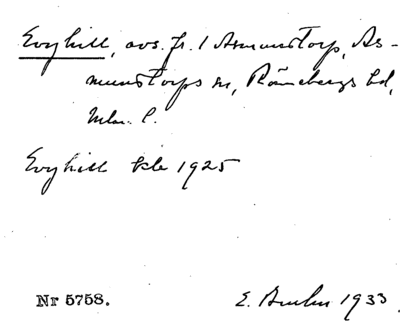 Evyhill, avs. fr. 1 Asmundstorp, As-
mundstorps sn, Rönnebergs hd,
Mlm. l.
Evyhill kle 1925
Nr 5758.
E. Bruhn 1933